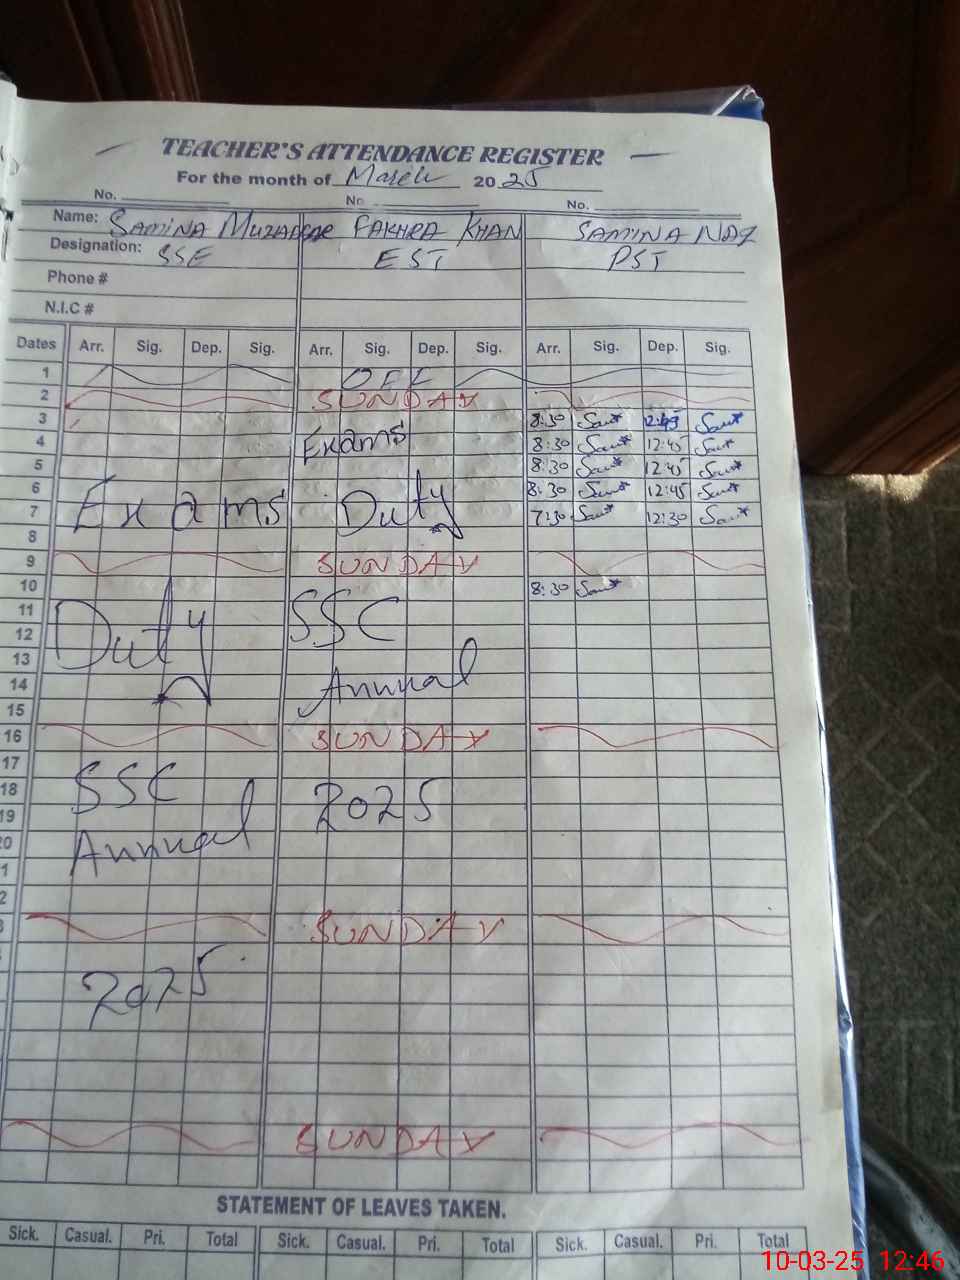 TEACHER'S ATTENDANCE REGISTER
For the month of March 2025
No. No No.
Name: SAMINA MUZAFFAR FAKHRA KHAN SAMINA NAZ
Designation: SSE EST PST
Phone #
N.I.C #
Dates Arr. Sig. Dep. Sig. Arr. Sig. Dep. Sig. Arr. Sig. Dep. Sig.
1 OFF
2 SUNDAY
3 8:30 12:45
4 Exams 8:30 12:45
5 8:30 12:45
6 8:30 12:45
7 Exams Duty 7:30 12:30
8
9 SUNDAY
10 8:30
11
12 Duty SSC
13
14 Annual
15
16 SUNDAY
17
18 SSC 2025
19
20 Annual
1
2
3 SUNDAY
2025
SUNDAY
STATEMENT OF LEAVES TAKEN.
Sick. Casual. Pri. Total Sick. Casual. Pri. Total Sick. Casual. Pri. Total
10-03-25 12:46